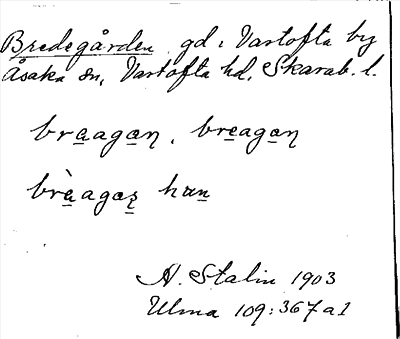 Bredegården gd i Vartofta by
Åsaka sn, Vartofta hd, Skarab. l.
bra̲aga̲ŋ, bre̲aga̲ŋ
brè̲aga̲ʂ han̲
A. Stalin 1903
Ulma 109:367 a 1